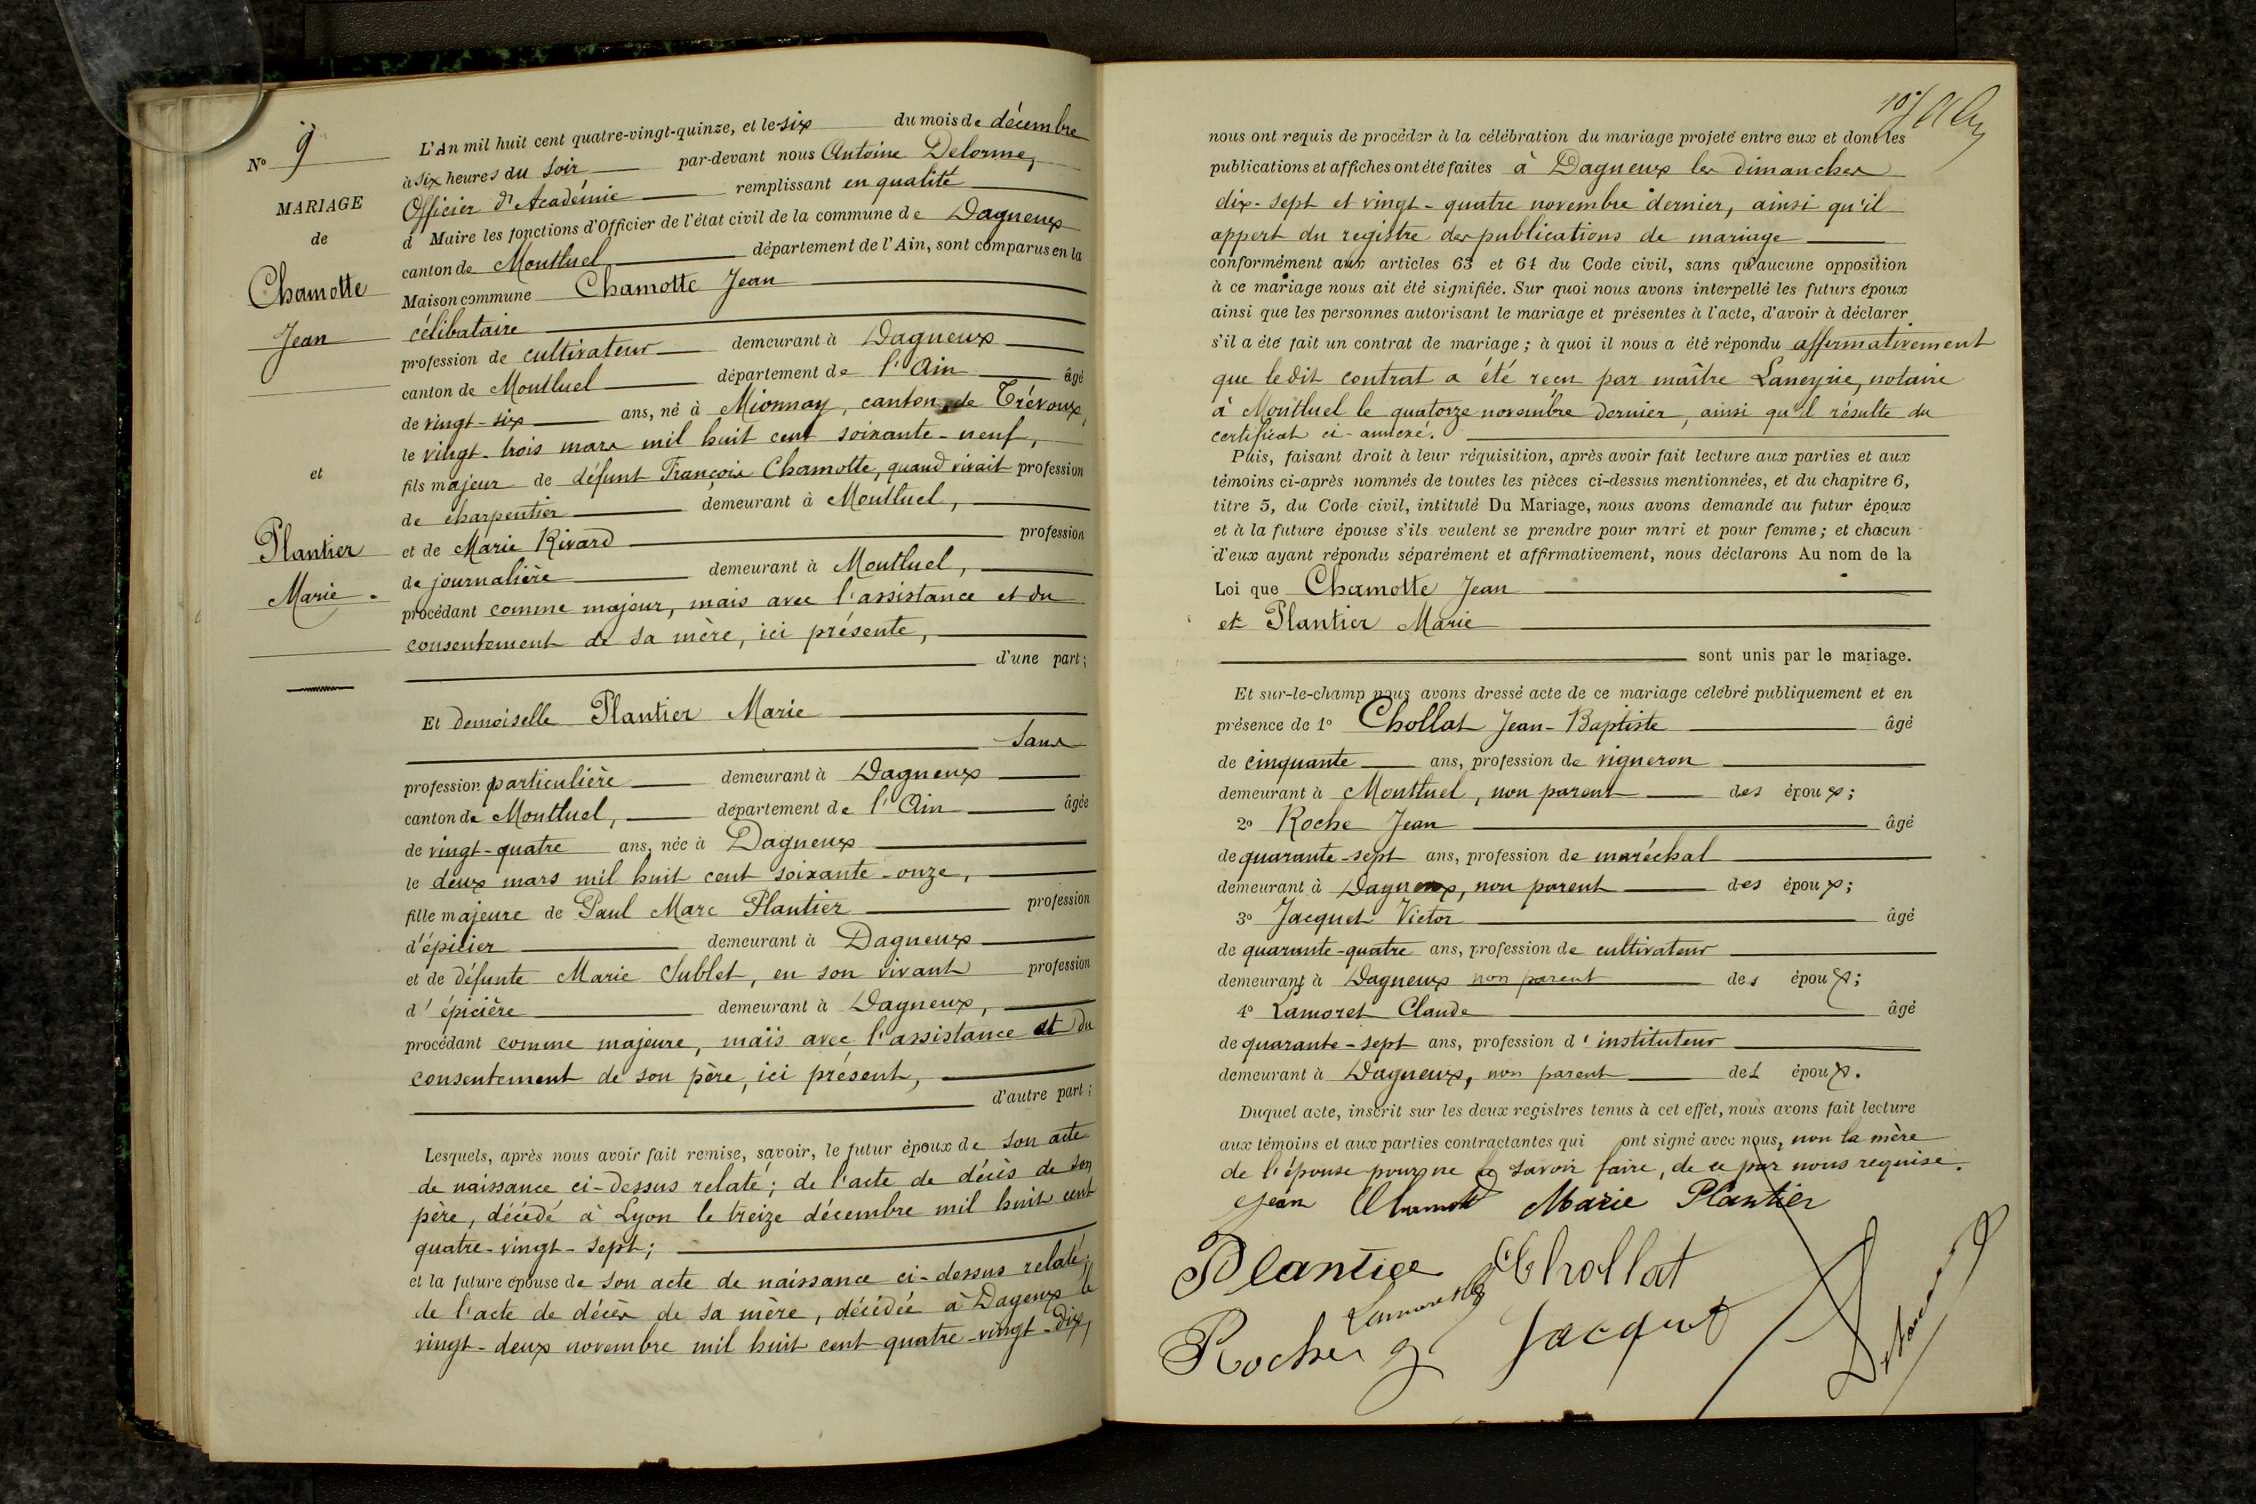 N° 9
MARIAGE
de
Chamotte
Jean
et
Plantier
Marie.
L'An mil huit cent quatre-vingt-quinze, et le six du mois de décembre
à six heures du soir par-devant nous Antoine Delorme,
Officier d'Académie remplissant en qualité
d Maire les fonctions d'Officier de l'état civil de la commune de Dagneux
canton de Montluel département de l'Ain, sont comparus en la
Maison commune Chamotte Jean
célibataire
profession de cultivateur demeurant à Dagneux
canton de Montluel département de l'Ain âgé
de vingt-six ans, né à Mionnay, canton de Trévoux,
le vingt-trois mars mil huit cent soixante-neuf,
fils majeur de défunt François Chamotte, quand vivait profession
de charpentier demeurant à Montluel,
et de Marie Rivard profession
de journalière demeurant à Montluel,
procédant comme majeur, mais avec l'assistance et du
consentement de sa mère, ici présente,
d'une part;
Et demoiselle Plantier Marie
sans
profession particulière demeurant à Dagneux
canton de Montluel, département de l'Ain âgée
de vingt-quatre ans, née à Dagneux
le deux mars mil huit cent soixante-onze,
fille majeure de Paul Marc Plantier profession
d'épicier demeurant à Dagneux
et de défunte Marie Sublet, en son vivant profession
d'épicière demeurant à Dagneux,
procédant comme majeure, mais avec l'assistance et du
consentement de son père, ici présent,
d'autre part;
Lesquels, après nous avoir fait remise, savoir, le futur époux de son acte
de naissance ci-dessus relaté; de l'acte de décès de son
père, décédé à Lyon le treize décembre mil huit cent
quatre-vingt-sept;
et la future épouse de son acte de naissance ci-dessus relaté;
de l'acte de décès de sa mère, décédée à Dageux le
vingt-deux novembre mil huit cent quatre-vingt-dix,
10
nous ont requis de procéder à la célébration du mariage projeté entre eux et dont les
publications et affiches ont été faites à Dagneux les dimanches
dix-sept et vingt-quatre novembre dernier, ainsi qu'il
appert du registre des publications de mariage
conformément aux articles 63 et 64 du Code civil, sans qu'aucune opposition
à ce mariage nous ait été signifiée. Sur quoi nous avons interpellé les futurs époux
ainsi que les personnes autorisant le mariage et présentes à l'acte, d'avoir à déclarer
s'il a été fait un contrat de mariage; à quoi il nous a été répondu affirmativement
que ledit contrat a été reçu par maître Laneyrie, notaire
à Montluel le quatorze novembre dernier, ainsi qu'il résulte du
certificat ci-annexé.
Puis, faisant droit à leur réquisition, après avoir fait lecture aux parties et aux
témoins ci-après nommés de toutes les pièces ci-dessus mentionnées, et du chapitre 6,
titre 5, du Code civil, intitulé Du Mariage, nous avons demandé au futur époux
et à la future épouse s'ils veulent se prendre pour mari et pour femme; et chacun
d'eux ayant répondu séparément et affirmativement, nous déclarons Au nom de la
Loi que Chamotte Jean
et Plantier Marie
sont unis par le mariage.
Et sur-le-champ nous avons dressé acte de ce mariage célébré publiquement et en
présence de 1° Chollat Jean-Baptiste âgé
de cinquante ans, profession de vigneron
demeurant à Montluel, non parent des époux;
2° Roche Jean âgé
de quarante-sept ans, profession de maréchal
demeurant à Dagneux, non parent des époux;
3° Jacquet Victor âgé
de quarante-quatre ans, profession de cultivateur
demeurant à Dagneux non parent des époux;
4° Lamoret Claude âgé
de quarante-sept ans, profession d'instituteur
demeurant à Dagneux, non parent des époux.
Duquel acte, inscrit sur les deux registres tenus à cet effet, nous avons fait lecture
aux témoins et aux parties contractantes qui ont signé avec nous, non la mère
de l'épouse pour ne le savoir faire, de ce par nous requise.
Jean Chamotte Marie Plantier
Plantier Chollat
Lamoret
Roche Jacquet